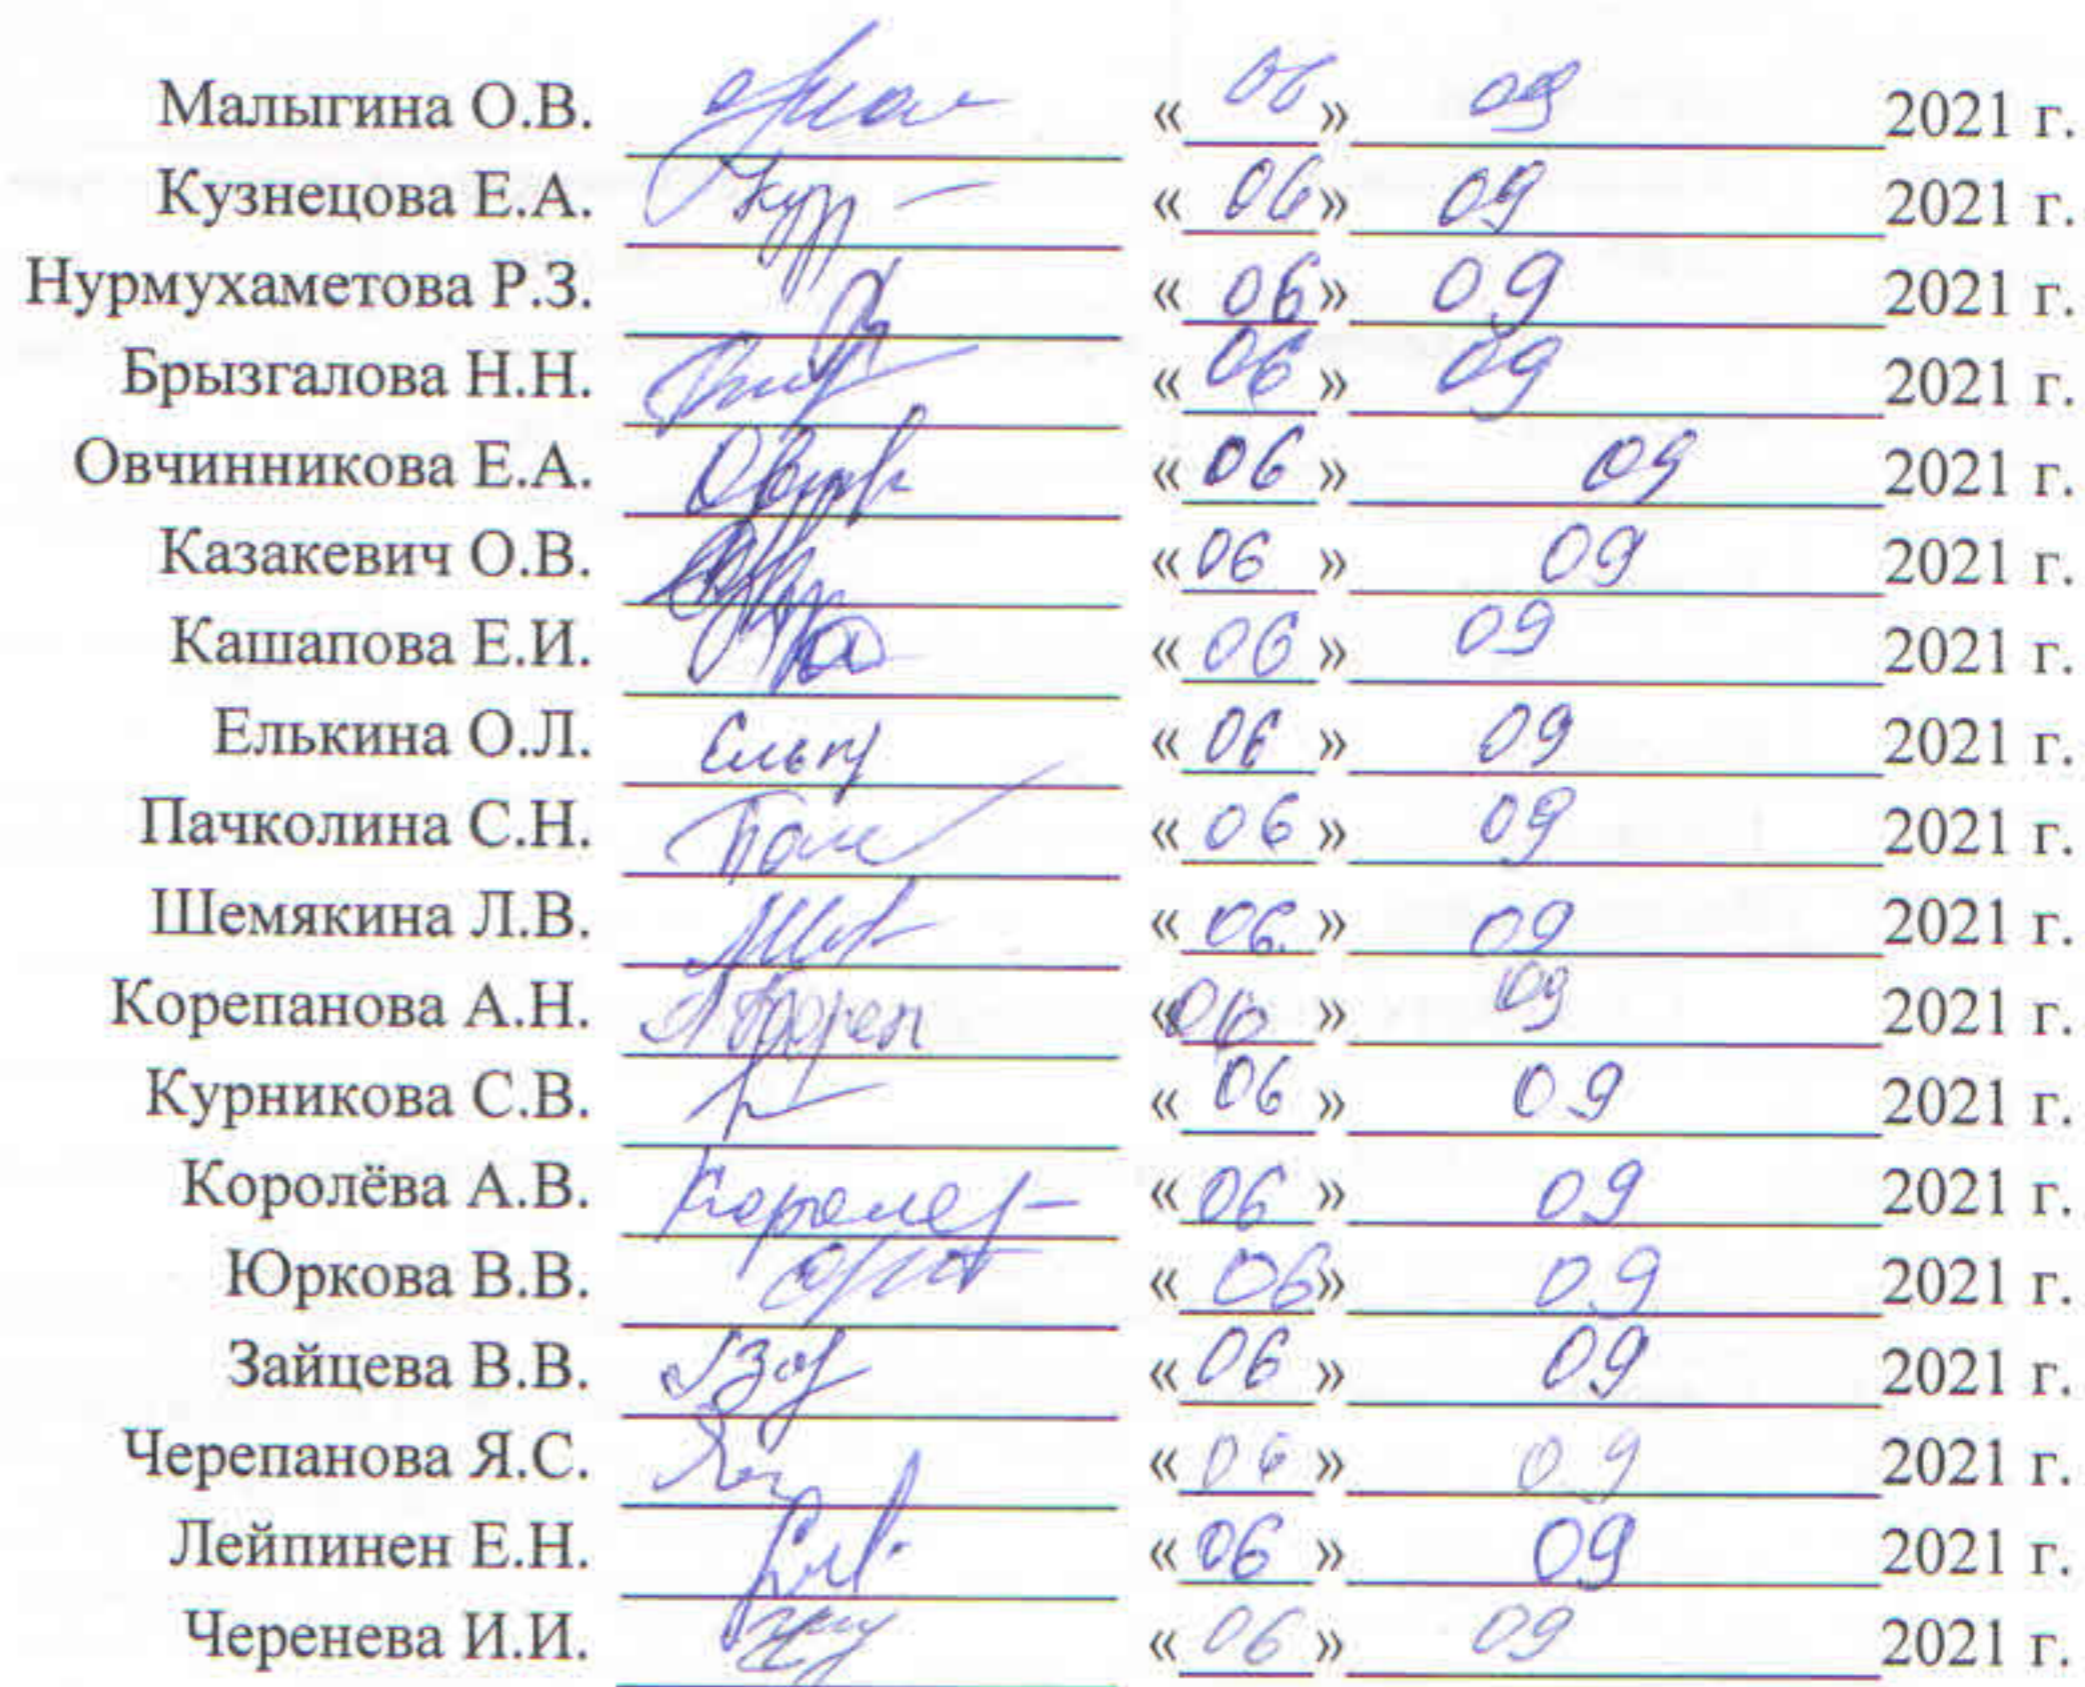 Малыгина О.В. «06» 09 2021 г.
Кузнецова Е.А. «06» 09 2021 г.
Нурмухаметова Р.З. «06» 09 2021 г.
Брызгалова Н.Н. «06» 09 2021 г.
Овчинникова Е.А. «06» 09 2021 г.
Казакевич О.В. «06» 09 2021 г.
Кашапова Е.И. «06» 09 2021 г.
Елькина О.Л. «06» 09 2021 г.
Пачколина С.Н. «06» 09 2021 г.
Шемякина Л.В. «06.» 09 2021 г.
Корепанова А.Н. «06» 09 2021 г.
Курникова С.В. «06» 09 2021 г.
Королёва А.В. «06» 09 2021 г.
Юркова В.В. «06» 09 2021 г.
Зайцева В.В. «06» 09 2021 г.
Черепанова Я.С. «06» 09 2021 г.
Лейпинен Е.Н. «06» 09 2021 г.
Черенева И.И. «06» 09 2021 г.